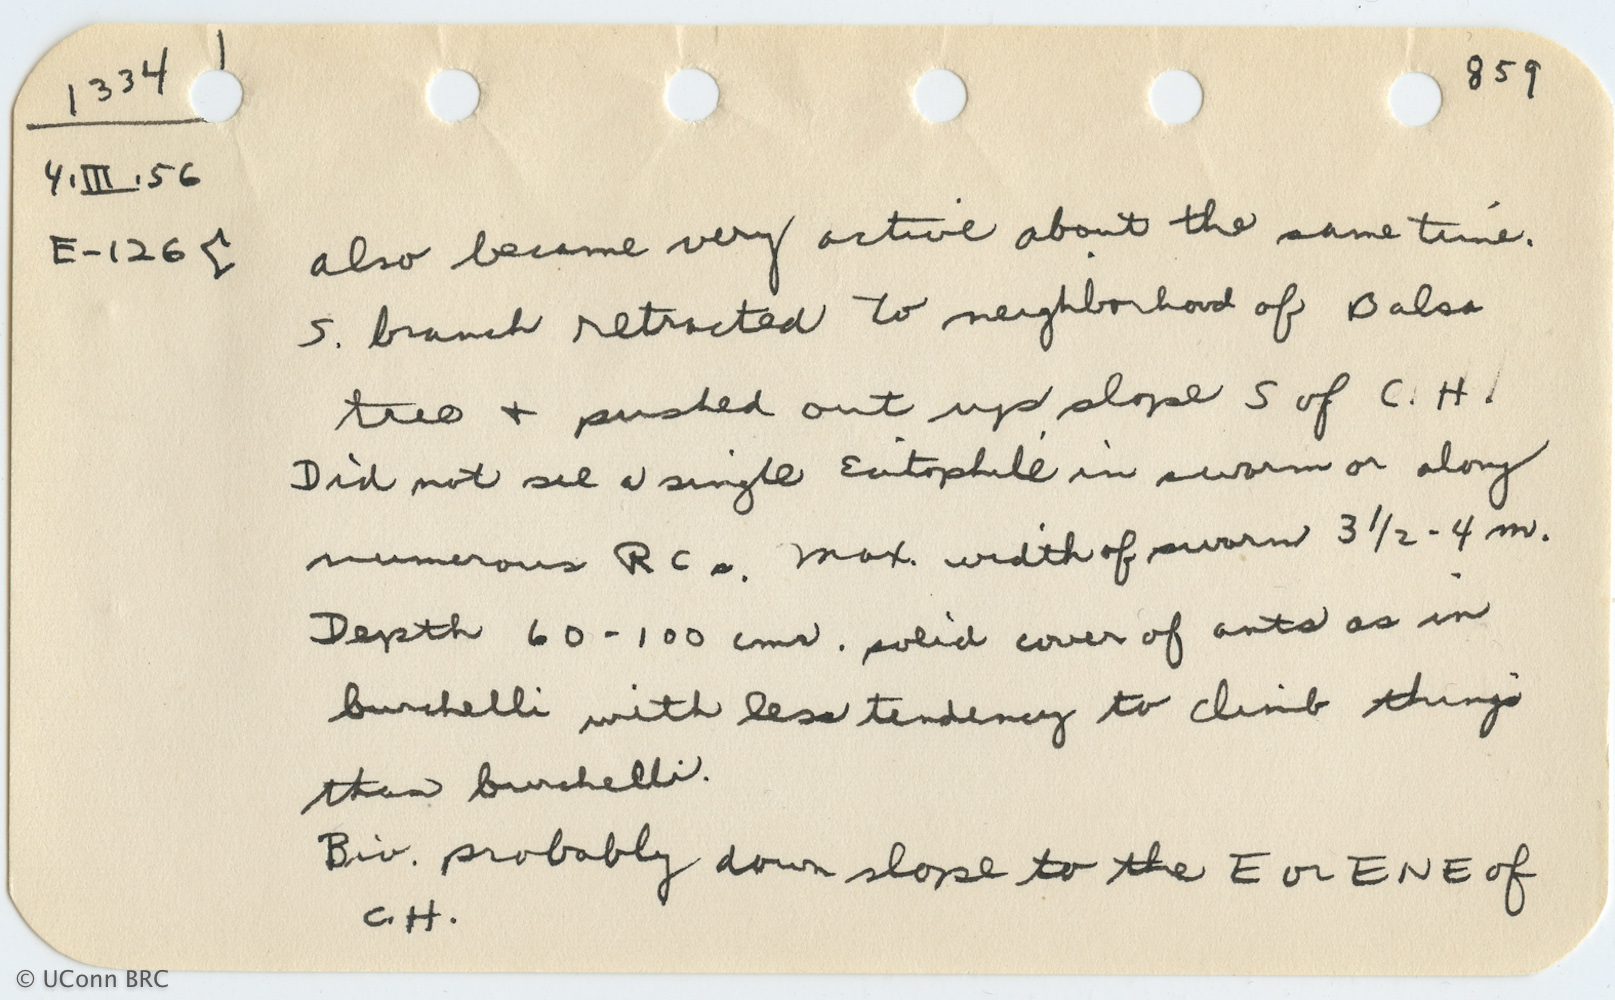 1334
859
4.III.56
E-126 {
also became very active about the same time.
S. branch retracted to neighborhood of Balsa
tree + pushed out up slope S of C.H.
Did not see a single Ecitophile in swarm or along
numerous RCs. Max. width of swarm 3 1/2 - 4 m.
Depth 60-100 cms. solid cover of ants as in
burchelli with less tendency to climb things
than burchelli.
Biv. probably down slope to the E or ENE of
C.H.
© UConn BRC